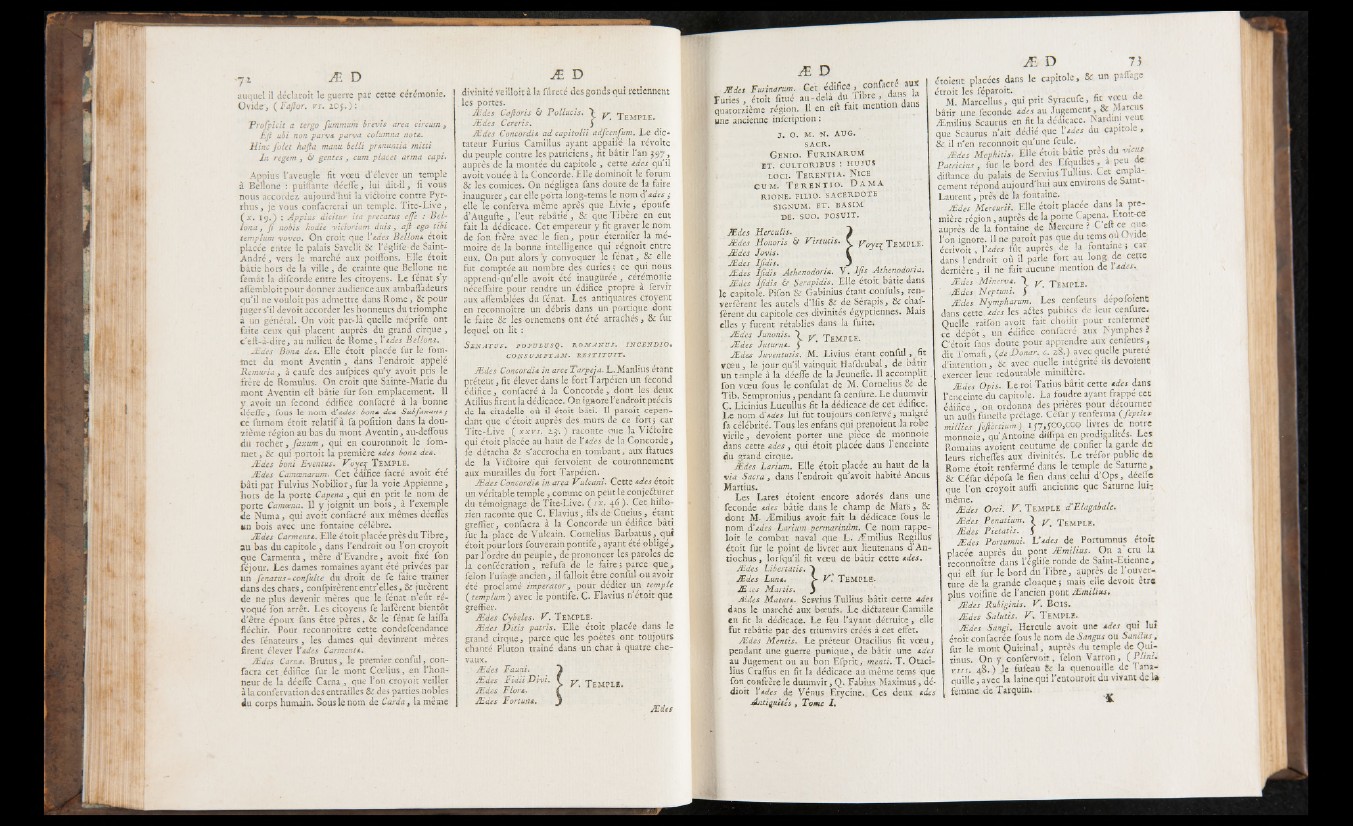 72 Æ D
auquel il déclaroit le guerre par cette cérémonie.
Ovide, ( Fastor. VI. 205. ) :
Prospicit a tergo summum brevis area circum,
Est ubi non parvæ parva columna notæ.
Hinc solet hasta manu belli prænuntia mitti
In regem, & gentes, cum placet arma capi.
Appius l'aveugle fit vœu d'élever un temple
à Bellone : puissante déesse, lui dit-il, si vous
nous accordez aujourd'hui la victoire contre Pyr-
rhus, je vous consacrerai un temple. Tite-Live,
( X. 19. ) : Appius dicitur ita precatus esse : Bel-
lona, si nobis hodie victoriam duis, ast ego tibi
templum voveo. On croit que l'ædes Bellonæ étoit
placée entre le palais Savelli & l'église de Saint-
André, vers le marché aux poissons. Elle étoit
bâtie hors de la ville, de crainte que Bellone ne
semât la discorde entre les citoyens. Le sénat s'y
assembloit pour donner audience aux ambassadeurs
qu'il ne vouloit pas admettre dans Rome, & pour
juger s'il devoit accorder les honneurs du triomphe
à un général. On voit par-là quelle méprise ont
faite ceux qui placent auprès du grand cirque,
c'est-à-dire, au milieu de Rome, l'ædes Bellonæ.
Ædes Bonæ deæ. Elle étoit placée sur le som-
met du mont Aventin, dans l'endroit appelé
Remuria, à cause des auspices qu'y avoit pris le
frère de Romulus. On croit que Sainte-Marie du
mont Aventin est bâtie sur son emplacement. Il
y avoit un second édifice consacré à la bonne
déesse, sous le nom d'ædes bonæ deæ Subsaxaneæ;
ce surnom étoit relatif à sa position dans la dou-
zième région au bas du mont Aventin, au-dessous
du rocher, saxum, qui en couronnoit le som-
met, & qui portoit la première ædes bonæ deæ.
Ædes boni Eventus. Voyez TEMPLE.
Ædes Camœnarum. Cet édifice sacré avoit été
bâti par Fulvius Nobilior, sur la voie Appienne,
hors de la porte Capena, qui en prit le nom de
porte Camœna. Il y joignit un bois, à l'exemple
de Numa, qui avoit consacré aux mêmes déesses
un bois avec une fontaine célèbre.
Ædes Carmentæ. Elle étoit placée près du Tibre,
au bas du capitole, dans l'endroit ou l'on croyoit
que Carmenta, mère d'Evandre, avoit fixé son
séjour. Les dames romaines ayant été privées par
un senatus-consulte du droit de se faire traîner
dans des chars, conspirèrent entr'elles, & jurèrent
de ne plus devenir mères que le sénat n'eût ré-
voqué son arrêt. Les citoyens se lassèrent bientôt
d'être époux sans être pères, & le sénat se laissa
fléchir. Pour reconnoitre cette condescendance
des sénateurs, les dames qui devinrent mères
firent élever l'ædes Carmentæ.
Ædes Carnæ. Brutus, le premier consul, con-
sacra cet édifice sur le mont Cœlius, en l'hon-
neur de la déesse Carna, que l'on croyoit veiller
à la conservation des entrailles & des parties nobles
du corps humain. Sous le nom de Carda, la même
Æ D
divinité veilloit à la sûreté des gonds qui retiennent
les portes.
Ædes Castoris & Pollucis. } V. TEMPLE.
Ædes Cereris.
Ædes Concordiæ ad capitolii adscensum. Le dic-
tateur Furius Camillus ayant appaisé la révolte
du peuple contre les patriciens, fit bâtir l'an 397,
auprès de la montée du capitole, cette ædes qu'il
avoit vouée à la Concorde. Elle dominoit le forum
& les comices. On négligea sans doute de la faire
inaugurer; car elle porta long-tems le nom d'ædes;
elle le conserva même après que Livie, épouse
d'Auguste, l'eut rebâtie, & que Tibère en eut
fait la dédicace. Cet empereur y fit graver le nom
de son frère avec le sien, pour éterniser la mé-
moire de la bonne intelligence qui régnoit entre
eux. On put alors y convoquer le sénat, & elle
fut comptée au nombre des curies; ce qui nous
apprend qu'elle avoit été inaugurée, cérémonie
nécessaire pour rendre un édifice propre à servir
aux assemblées du sénat. Les antiquaires croyent
en reconnoitre un débris dans un portique dont
le faite & les ornemens ont été arrachés, & sur
lequel on lit :
SENATUS. POPULUSQ. ROMANUS. INCENDIO.
CONSUMPTAM. RESTITUIT.
Ædes Concordiæ in arce Tarpeja. L. Manlius étant
préteur, fit élever dans le fort Tarpéien un second
édifice, consacré à la Concorde, dont les deux
Atilius firent la dédicace. On ignore l'endroit précis
de la citadelle où il étoit bâti. Il paroit cepen-
dant que c'étoit auprès des murs de ce fort; car
Tite-Live ( XXVI. 23. ) raconte que la Victoire
qui étoit placée au haut de l'ædes de la Concorde,
se détacha & s'accrocha en tombant, aux statues
de la Victoire qui servoient de couronnement
aux murailles du fort Tarpéien.
Ædes Concordiæ in area Vulcani. Cette ædes étoit
un véritable temple, comme on peut le conjecturer
du témoignage de Tite-Live. ( IX. 46 ). Cet histo-
rien raconte que C. Flavius, fils de Cneius, étant
greffier, consacra à la Concorde un édifice bâti
sur la place de Vulcain. Cornelius Barbatus, qui
étoit pour lors souverain pontife, ayant été obligé,
par l'ordre du peuple, de prononcer les paroles de
la consécration, refusa de le faire; parce que,
selon l'usage ancien, il falloit être consul ou avoir
été proclamé imperator, pour dédier un temple
( templum ) avec le pontife. C. Flavius n'étoit que
greffier.
Ædes Cybeles. V. TEMPLE.
Ædes Ditis patris. Elle étoit placée dans le
grand cirque, parce que les poètes ont toujours
chanté Pluton traîné dans un char à quatre che-
vaux.
Ædes Fauni.
Ædes Fidii Divi. } V. TEMPLE.
Ædes Floræ.
Ædes Fortunæ.
Ædes
Æ D
Ædes Furinarum. Cet édifice, consacré aux
Furies, étoit situé au-delà du Tibre, dans la
quatorzième région. Il en est fait mention dans
une ancienne inscription :
J. O. M. N. AUG.
SACR.
GENIO. FURINARUM
ET. CULTORIBUS : HUJUS
LOCI. TERENTIA. NICE
CUM. TERENTIO. DAMA
RIONE. FILIO. SACERDOTE
SIGNUM. ET. BASIM
DE. SUO. POSUIT.
Ædes Herculis.
Ædes Honoris & Virtutis. } Voyez TEMPLE.
Ædes Jovis.
Ædes Isidis.
Ædes Isidis Athenodoriæ. V. Isis Athenodoria.
Ædes Isidis & Serapidis. Elle étoit bâtie dans
le capitole. Pison & Gabinius étant consuls, ren-
versèrent les autels d'Isis & de Sérapis, & chas-
sèrent du capitole ces divinités égyptiennes. Mais
elles y furent rétablies dans la suite.
Ædes Junonis. } V. TEMPLE.
Ædes Juturnæ.
Ædes Juventutis. M. Livius étant consul, fit
vœu, le jour qu'il vainquit Hasdrubal, de bâtir
un temple à la déesse de la Jeunesse. Il accomplit
son vœu sous le consulat de M. Cornelius & de
Tib. Sempronius, pendant sa censure. Le duumvir
C. Licinius Lucullus fit la dédicace de cet édifice.
Le nom d'ædes lui fut toujours conservé, malgré
sa célébrité. Tous les enfans qui prenoient la robe
virile, devoient porter une pièce de monnoie
dans cette ædes, qui étoit placée dans l'enceinte
du grand cirque.
Ædes Larium. Elle étoit placée au haut de la
via Sacra, dans l'endroit qu'avoit habité Ancus
Martius.
Les Lares étoient encore adorés dans une
seconde ædes bâtie dans le champ de Mars, &
dont M. Æmilius avoit fait la dédicace sous le
nom d'ædes Larium permarinûm. Ce nom rappe-
loit le combat naval que L. Æmilius Regillus
étoit sur le point de livrer aux lieutenans d'An-
tiochus, lorsqu'il fit vœu de bâtir cette ædes.
Ædes Libertatis.
Ædes Lunæ. } V. TEMPLE.
Ædes Martis.
Ædes Matutæ. Servius Tullius bâtit cette ædes
dans le marché aux bœufs. Le dictateur Camille
en fit la dédicace. Le feu l'ayant détruite, elle
fut rebâtie par des triumvirs créés à cet effet.
Ædes Mentis. Le préteur Otacilius fit vœu,
pendant une guerre punique, de bâtir une ædes
au Jugement ou au bon Esprit, menti. T. Otaci-
lius Crassus en fit la dédicace au même tems que
son confrère le duumvir, Q. Fabius Maximus, dé-
dioit l'ædes de Vénus Erycine. Ces deux ædes
Antiquités, Tome I.
Æ D 73
étoient placées dans le capitole, & un passage
étroit les séparoit.
M. Marcellus, qui prit Syracuse, fit vœu de
bâtir une seconde ædes au Jugement, & Marcus
Æmilius Scaurus en fit la dédicace. Nardini veut
que Scaurus n'ait dédié que l'ædes du capitole,
& il n'en reconnoit qu'une seule.
Ædes Mephitis. Elle étoit bâtie près du vicus
Patricius, sur le bord des Esquilies, à peu de
distance du palais de Servius Tullius. Cet empla-
cement répond aujourd'hui aux environs de Saint-
Laurent, près de la fontaine.
Ædes Mercurii. Elle étoit placée dans la pre-
mière région, auprès de la porte Capena. Etoit-ce
auprès de la fontaine de Mercure ? C'est ce que
l'on ignore. Il ne paroit pas que du tems où Ovide
écrivoit, l'ædes fût auprès de la fontaine; car
dans l'endroit où il parle fort au long de cette
dernière, il ne fait aucune mention de l'ædes.
Ædes Minervæ. } V. TEMPLE.
Ædes Neptuni.
Ædes Nympharum. Les censeurs déposoient
dans cette ædes les actes publics de leur censure.
Quelle raison avoit fait choisir pour renfermer
ce dépôt, un édifice consacré aux Nymphes ?
C'étoit sans doute pour apprendre aux censeurs,
dit Tomasi, (de Donar. c. 28.) avec quelle pureté
d'intention, & avec quelle intégrité ils devoient
exercer leur redoutable ministère.
Ædes Opis. Le roi Tatius bâtit cette ædes dans
l'enceinte du capitole. La foudre ayant frappé cet
édifice, on ordonna des prières pour détourner
un aussi funeste présage. César y renferma ( septies
millies sestertium ) 157,500,000 livres de notre
monnoie, qu'Antoine dissipa en prodigalités. Les
Romains avoient coutume de confier la garde de
leurs richesses aux divinités. Le trésor public de
Rome étoit renfermé dans le temple de Saturne,
& César déposa le sien dans celui d'Ops, déesse
que l'on croyoit aussi ancienne que Saturne lui-
même.
Ædes Orci. V. TEMPLE d'Elagabale.
Ædes Penatium. } V. TEMPLE.
Ædes Pietatis.
Ædes Portumni. L'ædes de Portumnus étoit
placée auprès du pont Æmilius. On a cru la
reconnoitre dans l'église ronde de Saint-Etienne,
qui est sur le bord du Tibre, auprès de l'ouver-
ture de la grande cloaque; mais elle devoit être
plus voisine de l'ancien pont Æmilius.
Ædes Rubiginis. V. BOIS.
Ædes Salutis. V. TEMPLE.
Ædes Sangi. Hercule avoit une ædes qui lui
étoit consacrée sous le nom de Sangus ou Sanctus,
sur le mont Quirinal, auprès du temple de Qui-
rinus. On y conservoit, selon Varron, ( Plini.
VIII. 48. ) le fuseau & la quenouille de Tana-
quille, avec la laine qui l'entouroit du vivant de la
femme de Tarquin.
K